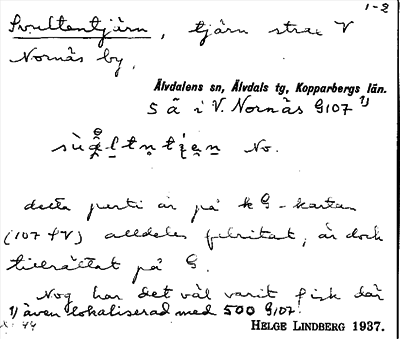 1-2
Svultentjärn, tjärn strax V
Nornäs by.
Älvdalens sn, Älvdals tg, Kopparbergs län.
S ä i V. Nornäs G107 1)
No.
detta parti är på k G-kartan
(107 fV) alldeles felritat, är dock
tillrättat på G.
Nog har det väl varit fisk där
1) även lokaliserad med 500 G107.
HELGE LINDBERG 1937.